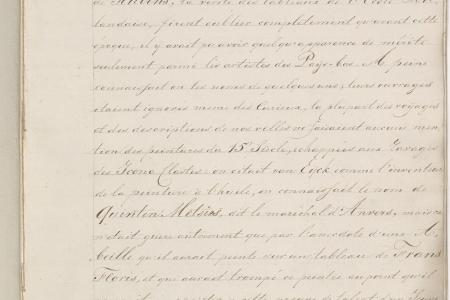 de Rubens, la vérité des tableaux de l'Ecole Hol-
landaise, firent oublier complètement qu'avant cette
époque, il y avait pu avoir quelqu'apparence de mérite
seulement parmi les artistes des Pays-bas. A peine
connaissait on les noms de quelques uns; leurs ouvrages
étaient ignorés meme des Curieux, la plupart des voyages
et des descriptions de nos villes ne faisaient aucune men
tion des peintures du 15e Siècle, echappées aux ravages
des Iconoclastes: on citait van Eyck comme l'inventeur
de la peinture à l'huile, on connaissait le nom de
Quinten Metsies, dit le maréchal d'Anvers, mais ce
n'était guère autrement que par l'anecdote d'une A.
beille qu'il aurait peinte sur un tableau de Frans
Floris, et que aurait trompé ce peintre au point qu'il